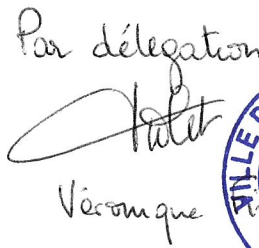 Par délégation
Véronique
VILLE D